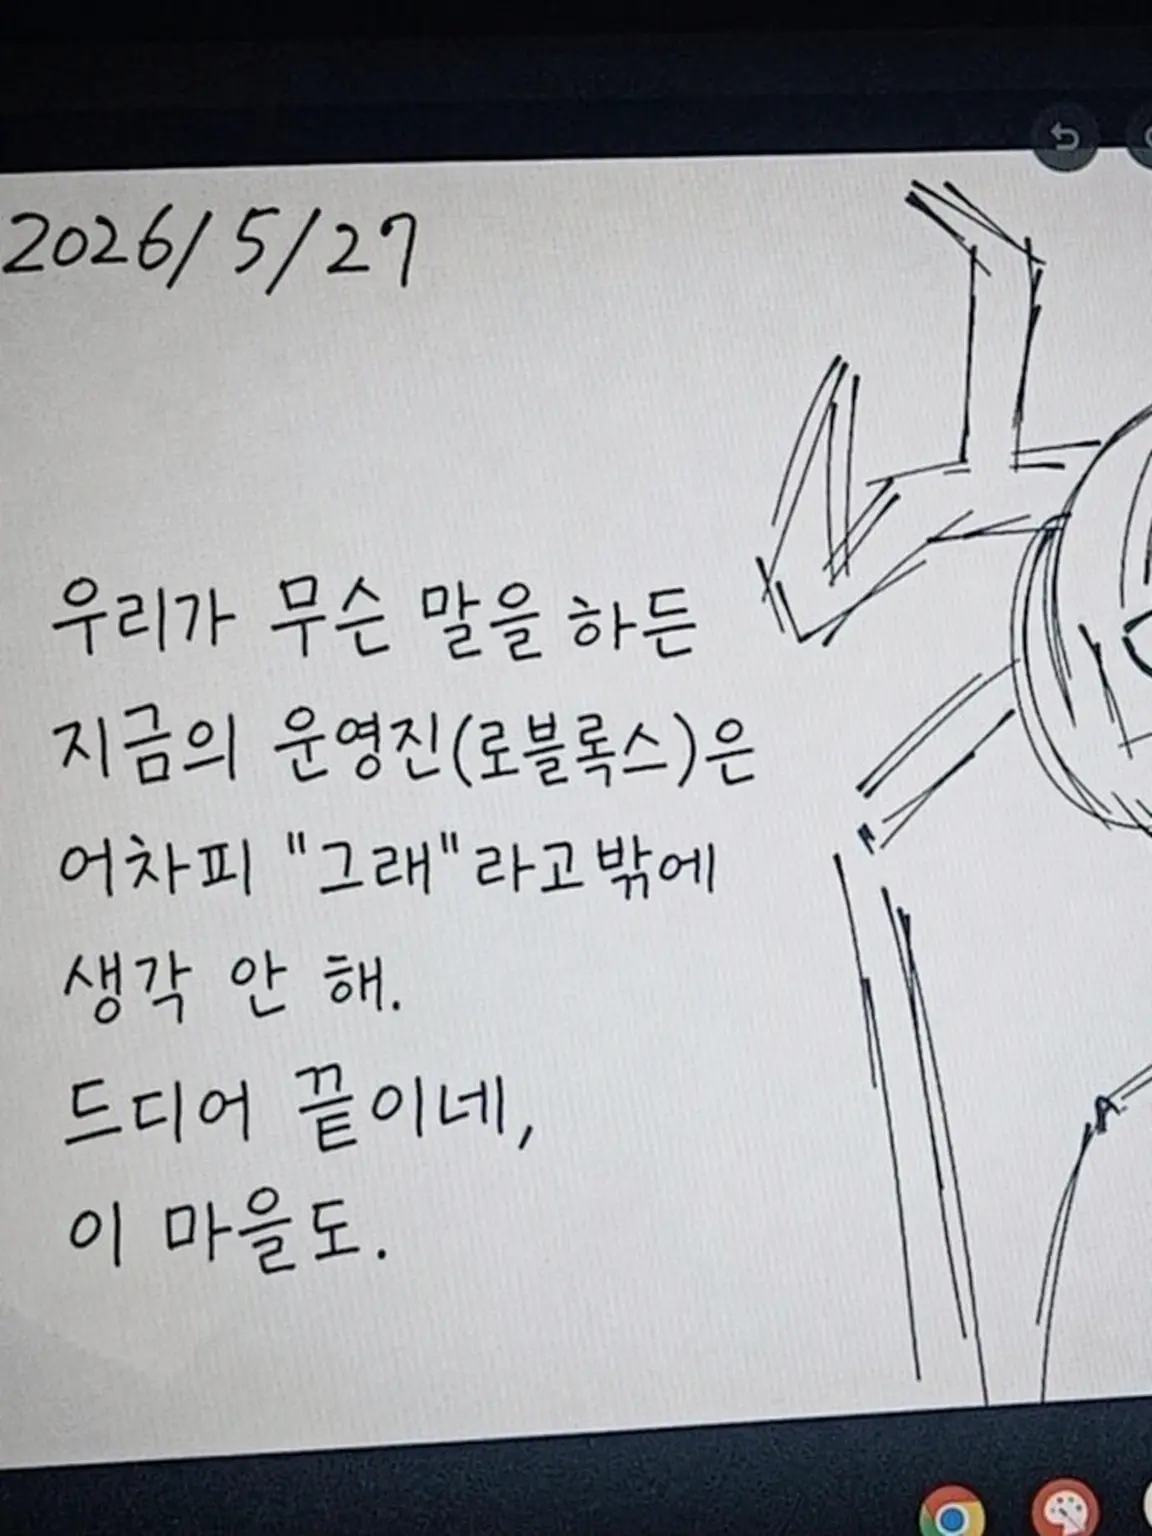 2026/5/27
우리가 무슨 말을 하든
지금의 운영진(로블록스)은
어차피 "그래"라고밖에
생각 안 해.
드디어 끝이네,
이 마을도.